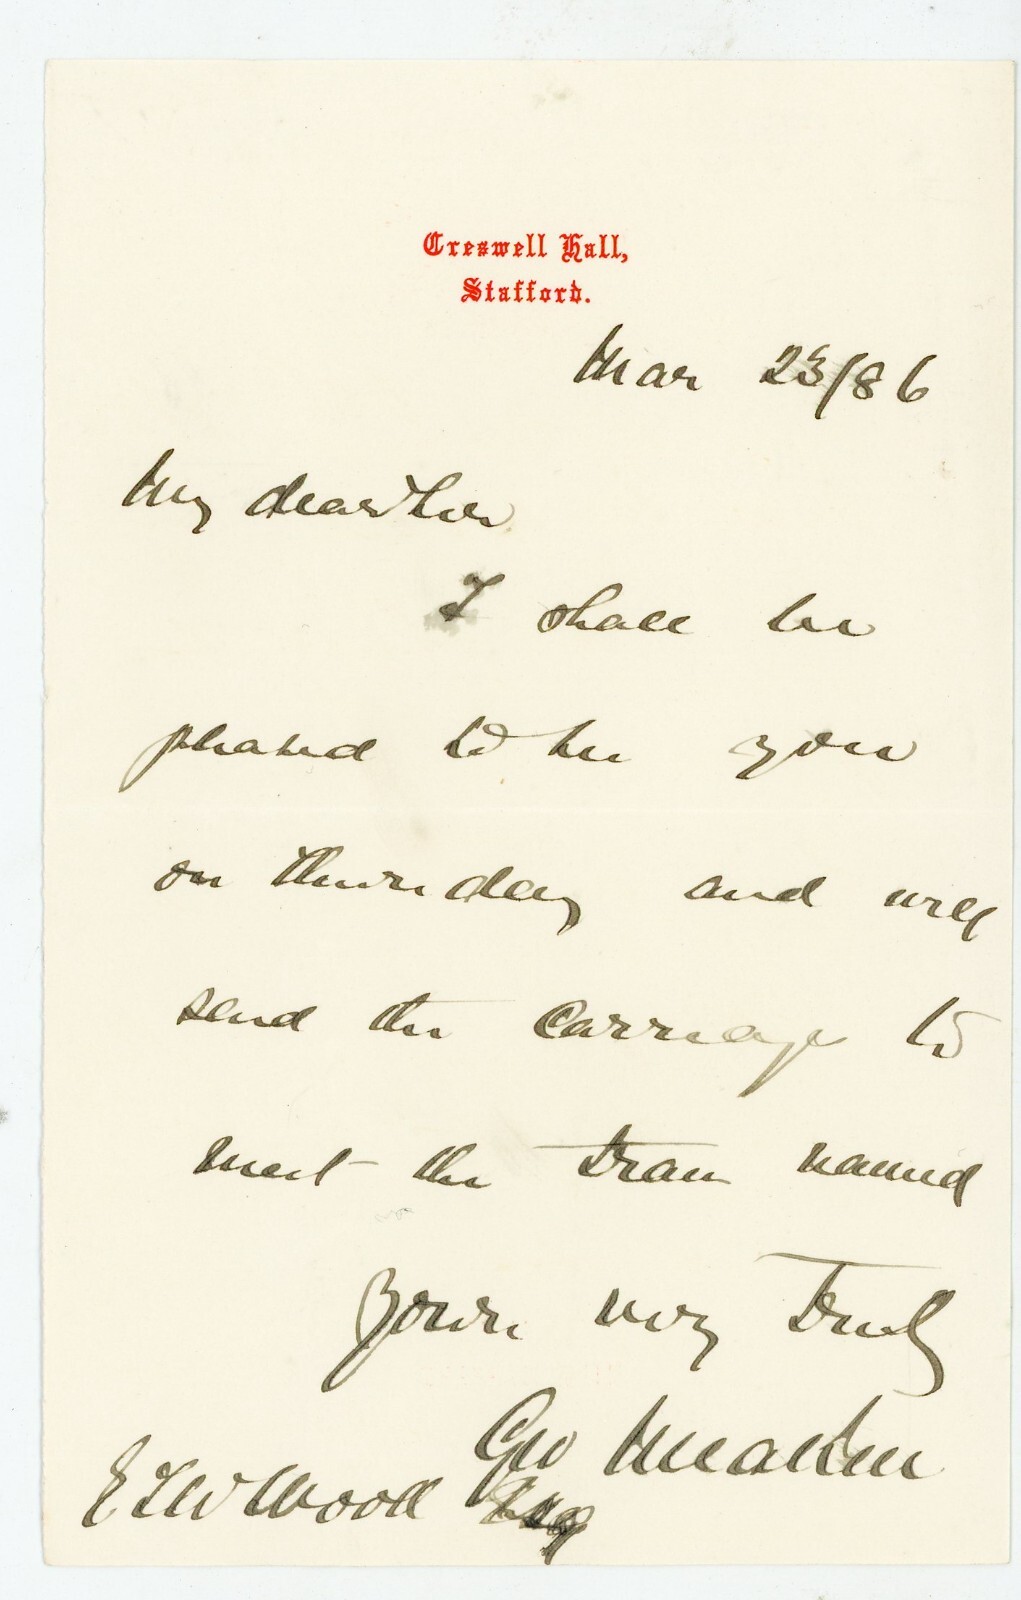 Creswell Hall,
Stafford.
Mar 23/86
My dear Sir
I shall be
pleased to see you
on Thursday and will
send the carriage to
meet the train named
Yours very truly
Geo Meakin
E T W Wood Esq